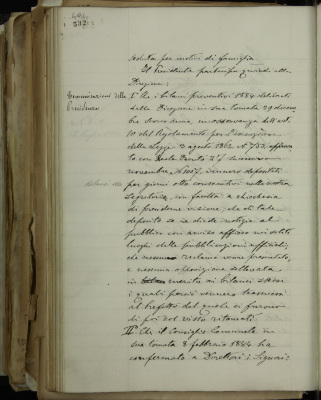 332
seduta per motivi di famiglia
Il Presidente partecipa quindi alla
Direzione:
Comunicazioni della
Presidenza
I° Che i bilanci preventivi 1884 deliberati
dalla Direzione in sua tornata 29 dicem-
bre ora scorso, in osservanza dell'art.
10 del Regolamento per l'esecuzione
della Legge 3 agosto 1862 N° 753, approva-
to con Reale Decreto 27
novembre, N° 1007, vennero depositati
per giorni otto consecutivi nella nostra
Segreteria, in facoltà a chiunque
di prenderne visione; che di tale
deposito se ne diede notizia al
pubblico con avviso affisso nei soliti
luoghi delle pubblicazioni ufficiali;
che nessun reclamo venne presentato,
e nessuna opposizione sollevata
in merito ai bilanci stessi
i quali perciò vennero trasmessi
al Prefetto dal quale ci furono
di poi col visto ritornati.
II° Che il Consiglio Comunale in
sua tornata 8 febbraio 1884 ha
confermato a Direttori i Signori: